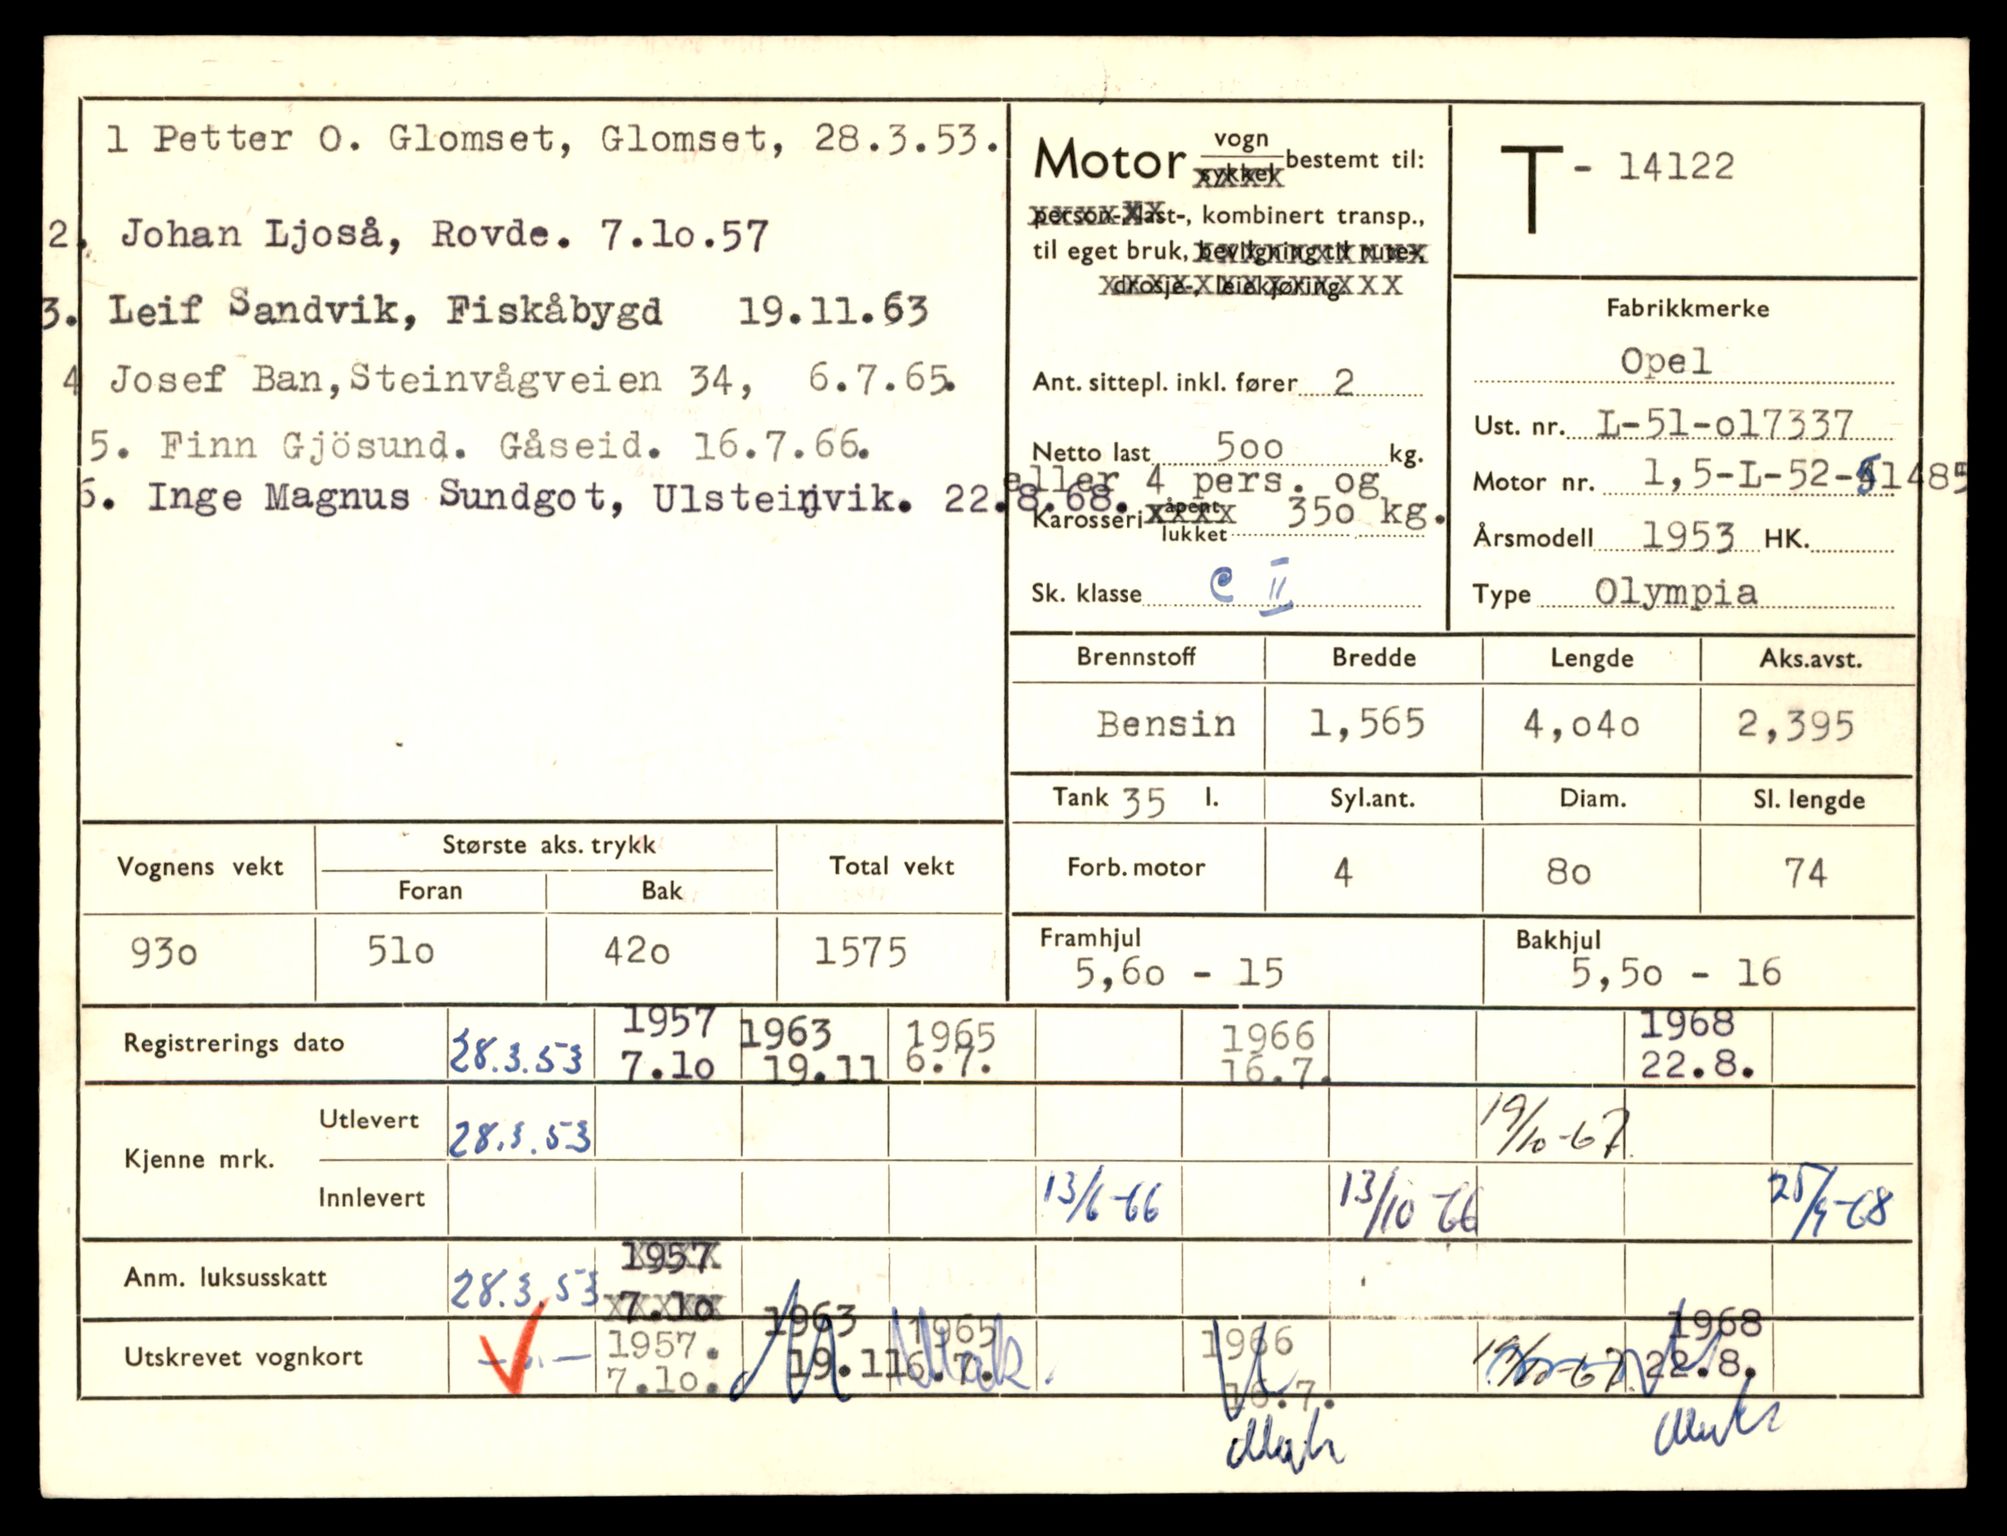 1 Petter O. Glomset, Glomset, 28.3.53.
2. Johan Ljoså, Rovde. 7.1o.57
3. Leif Sandvik, Fiskåbygd 19.11.63
4 Josef Ban,Steinvågveien 34, 6.7.65.
5. Finn Gjösund. Gåseid. 16.7.66.
6. Inge Magnus Sundgot, Ulsteinvik. 22.8.68.
Motor vogn
sykkel bestemt til:
person-, last-, kombinert transp.,
til eget bruk, bevilgning til rute-,
drosje-, leiekjøring.
Ant. sittepl. inkl. fører 2
Netto last 5oo kg.
eller 4 pers. og
Karosseri åpent 35o kg.
lukket
Sk. klasse C II
T - 14122
Fabrikkmerke
Opel
Ust. nr. L-51-o17337
Motor nr. 1,5-L-52-51485
Årsmodell 1953 HK.
Type Olympia
Brennstoff Bredde Lengde Aks.avst.
Bensin 1,565 4,o4o 2,395
Tank 35 l. Syl.ant. Diam. Sl. lengde
Forb. motor 4 8o 74
Framhjul Bakhjul
5,6o - 15 5,5o - 16
Vognens vekt Største aks. trykk Total vekt
Foran Bak
93o 51o 42o 1575
1957 1963 1965 1966 1968
Registrerings dato 28.3.53 7.1o 19.11 6.7. 16.7. 22.8.
Kjenne mrk. Utlevert 28.3.53 19/10-67
Innlevert 13/6-66 13/10-66 25/9-68
1957
Anm. luksusskatt 28.3.53 7.1o
1957. 1963 1965 1966 1968
Utskrevet vognkort —"— 7.1o. 19.11 6.7. 16.7. 19/10-67 22.8.